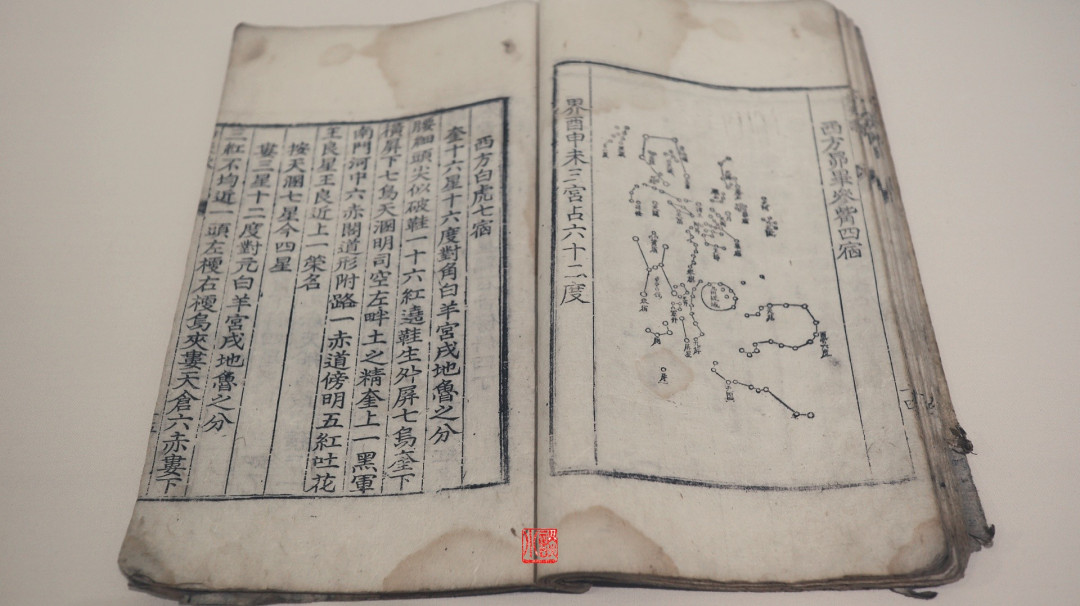 西方昴畢參觜四宿
界酉申未三宮占六十二度
西方白虎七宿
奎十六星十六度對角白羊宮戌地魯之分
腰細頭尖似破鞋一十六紅遶鞋生外屏七烏奎下
橫屏下七烏天溷明司空左畔土之精奎上一黑軍
南門河中六赤閣道形附路一赤道傍明五紅吐花
王良星王良近上一榮名
按天溷七星今四星
婁三星十二度對元白羊宮戌地魯之分
三紅不均近一頭左梗右梗烏夾婁天倉六赤婁下